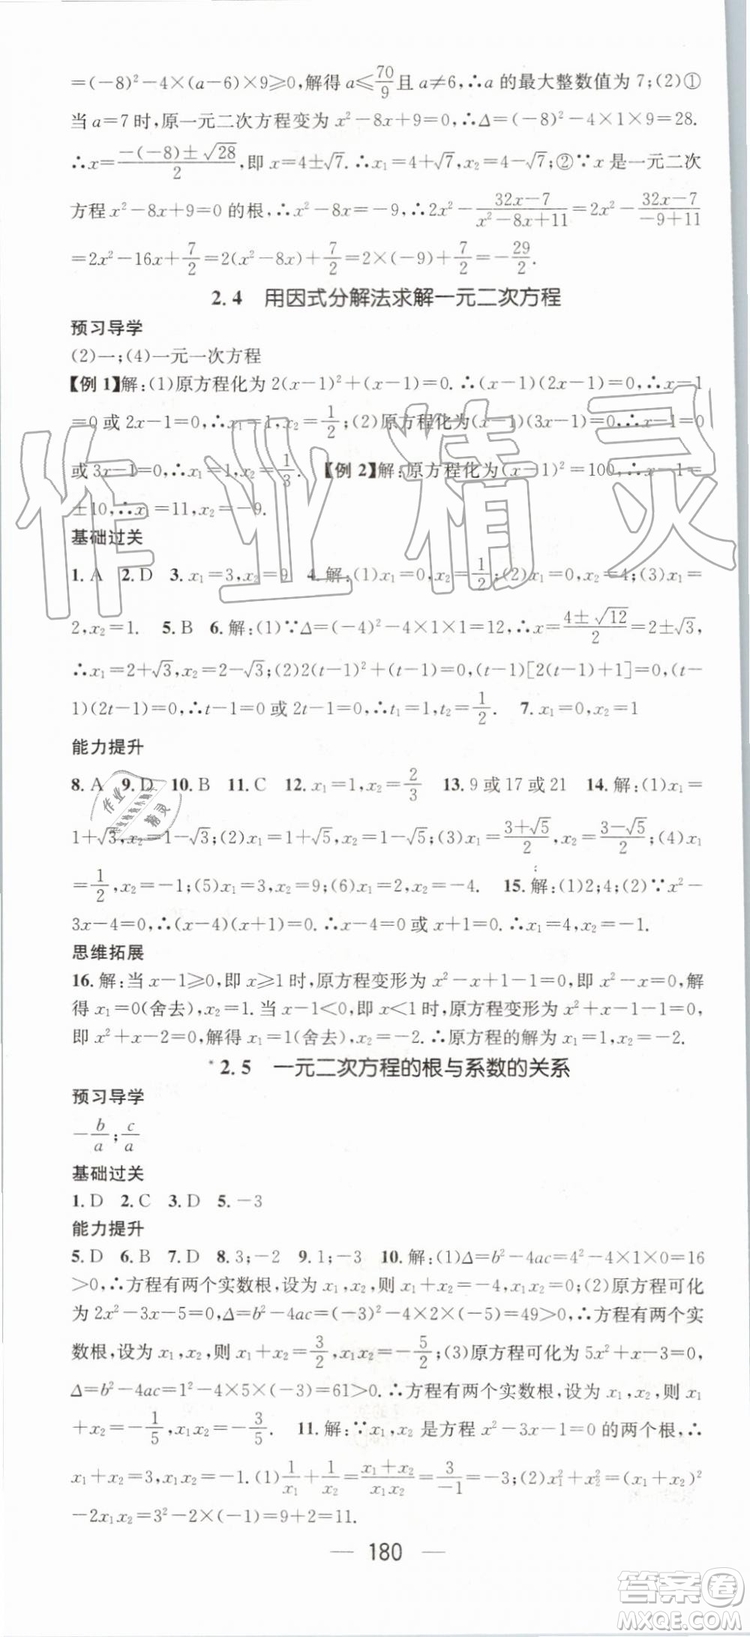 =(-8)²-4×(a-6)×9≥0,解得 a≤70/9 且 a≠6,∴a 的最大整数值为 7;(2)①
当 a=7 时,原一元二次方程变为 x²-8x+9=0.∴Δ=(-8)²-4×1×9=28.
∴x=(-(-8)±√28)/2,即 x=4±√7.∴x₁=4+√7,x₂=4-√7;②∵x 是一元二次
方程 x²-8x+9=0 的根,∴x²-8x=-9.∴2x²-(32x-7)/(x²-8x+11)=2x²-(32x-7)/(-9+11)
=2x²-16x+7/2=2(x²-8x)+7/2=2×(-9)+7/2=-29/2.
2.4 用因式分解法求解一元二次方程
预习导学
(2)一;(4)一元一次方程
【例 1】解:(1)原方程化为 2(x-1)²+(x-1)=0.∴(x-1)(2x-1)=0,∴x-1
=0 或 2x-1=0,∴x₁=1,x₂=1/2;(2)原方程化为(x-1)(3x-1)=0.∴x-1=0
或 3x-1=0,∴x₁=1,x₂=1/3. 【例 2】解:原方程化为(x-1)²=100,∴x-1=
±10,∴x₁=11,x₂=-9.
基础过关
1.A 2.D 3.x₁=3,x₂=9 4.解:(1)x₁=1/2;(2)x₁=0,x₂=4;(3)x₁=
2,x₂=1. 5.B 6.解:(1)∵Δ=(-4)²-4×1×1=12,∴x=(4±√12)/2=2±√3,
∴x₁=2+√3,x₂=2-√3;(2)2(t-1)²+(t-1)=0,(t-1)[2(t-1)+1]=0,(t-
1)(2t-1)=0,∴t-1=0 或 2t-1=0,∴t₁=1,t₂=1/2. 7.x=0 或 x=1
能力提升
8.A 9.D 10.B 11.C 12.x₁=1,x₂=2/3 13.9 或 17 或 21 14.解:(1)x₁=
1+√3,x₂=1-√3;(2)x₁=1+√5,x₂=1-√5;(3)x₁=(3+√5)/2,x₂=(3-√5)/2;(4)x₁
=1/2,x₂=-1;(5)x₁=3,x₂=9;(6)x₁=2,x₂=-4. 15.解:(1)2;4;(2)∵x²-
3x-4=0,∴(x-4)(x+1)=0.∴x-4=0 或 x+1=0.∴x₁=4,x₂=-1.
思维拓展
16.解:当 x-1≥0,即 x≥1 时,原方程变形为 x²-x+1-1=0,即 x²-x=0,解
得 x₁=0(舍去),x₂=1.当 x-1<0,即 x<1 时,原方程变形为 x²+x-1-1=0,
即 x²+x-2=0,解得 x₁=1(舍去),x₂=-2.∴原方程的解为 x₁=1,x₂=-2.
*2.5 一元二次方程的根与系数的关系
预习导学
-b/a;c/a
基础过关
1.D 2.C 3.D 5.-3
能力提升
5.D 6.B 7.D 8.3;-2 9.1;-3 10.解:(1)Δ=b²-4ac=4²-4×1×0=16
>0,∴方程有两个实数根,设为 x₁,x₂,则 x₁+x₂=-4,x₁x₂=0;(2)原方程可化
为 2x²-3x-5=0,Δ=b²-4ac=(-3)²-4×2×(-5)=49>0,∴方程有两个实
数根,设为 x₁,x₂,则 x₁+x₂=3/2,x₁x₂=-5/2;(3)原方程可化为 5x²+x-3=0,
Δ=b²-4ac=1²-4×5×(-3)=61>0.∴方程有两个实数根,设为 x₁,x₂,则
x₁+x₂=-1/5,x₁x₂=-3/5. 11.解:∵x₁,x₂ 是方程 x²-3x-1=0 的两个根,∴
x₁+x₂=3,x₁x₂=-1.(1)1/x₁+1/x₂=(x₁+x₂)/(x₁x₂)=3/(-1)=-3;(2)x₁²+x₂²=(x₁+x₂)²
-2x₁x₂=3²-2×(-1)=9+2=11.
180
作业精灵
作业精灵
答案圈
MXQE.COM